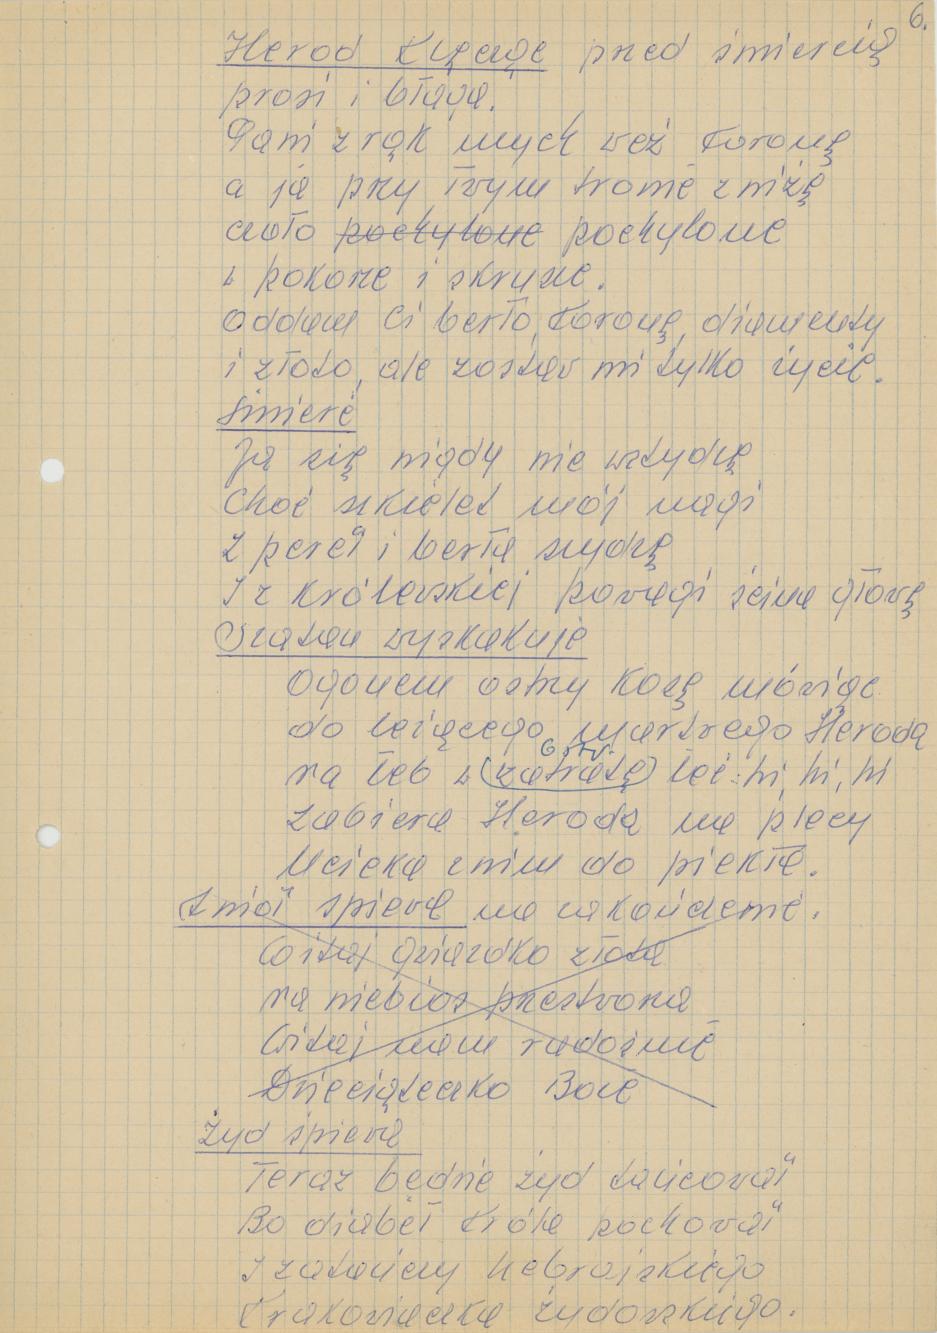 6.
Herod klęcząc przed śmiercią
prosi i błaga.
Pani z rąk mych weź koronę
a ja przy twym tronie zniżę
czoło pochylone pochylone
w pokorze i skrusze.
Oddam Ci berło, koronę, diamenty
i złoto, ale zostaw mi tylko życie.
Śmierć
Ja się nigdy nie wstydzę
Choć szkielet mój nagi
z pereł i berła szydzę
I z królewskiej powagi ścina głowę
Szatan wyskakuje
Ogonem ostrzy kosę mówiąc
do leżącego martwego Heroda
na łeb w (zatratę) leć: hi, hi, hi
zabiera Heroda na plecy
Ucieka z nim do piekła.
Anioł śpiewa na zakończenie.
Witaj gwiazdko złota
na niebios przestworza
Witaj nam radośnie
Dzieciąteczko Boże
Żyd śpiewa
Teraz będzie żyd tańcował
Bo diabeł króla pochował
I zatańczy hebrajskiego
Krakowiaczka żydowskiego.